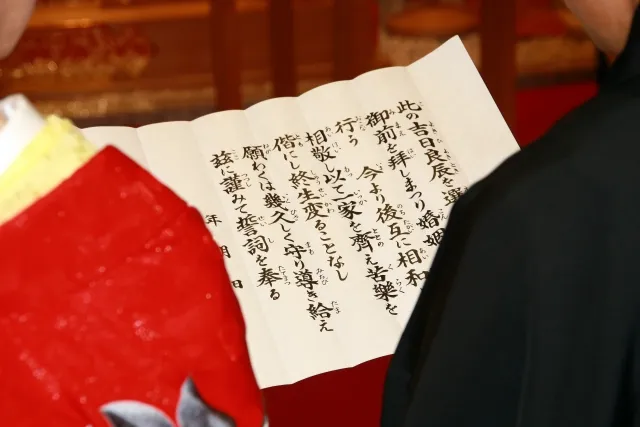 此の吉日良辰を
御前を拝しまつり婚姻
行う 今より後互に相和
相敬し以て一家を齊え苦樂を
偕にし終生変ることなし
願わくは幾久しく守り導き給え
茲に謹みて誓詞を奉る
年 月 日